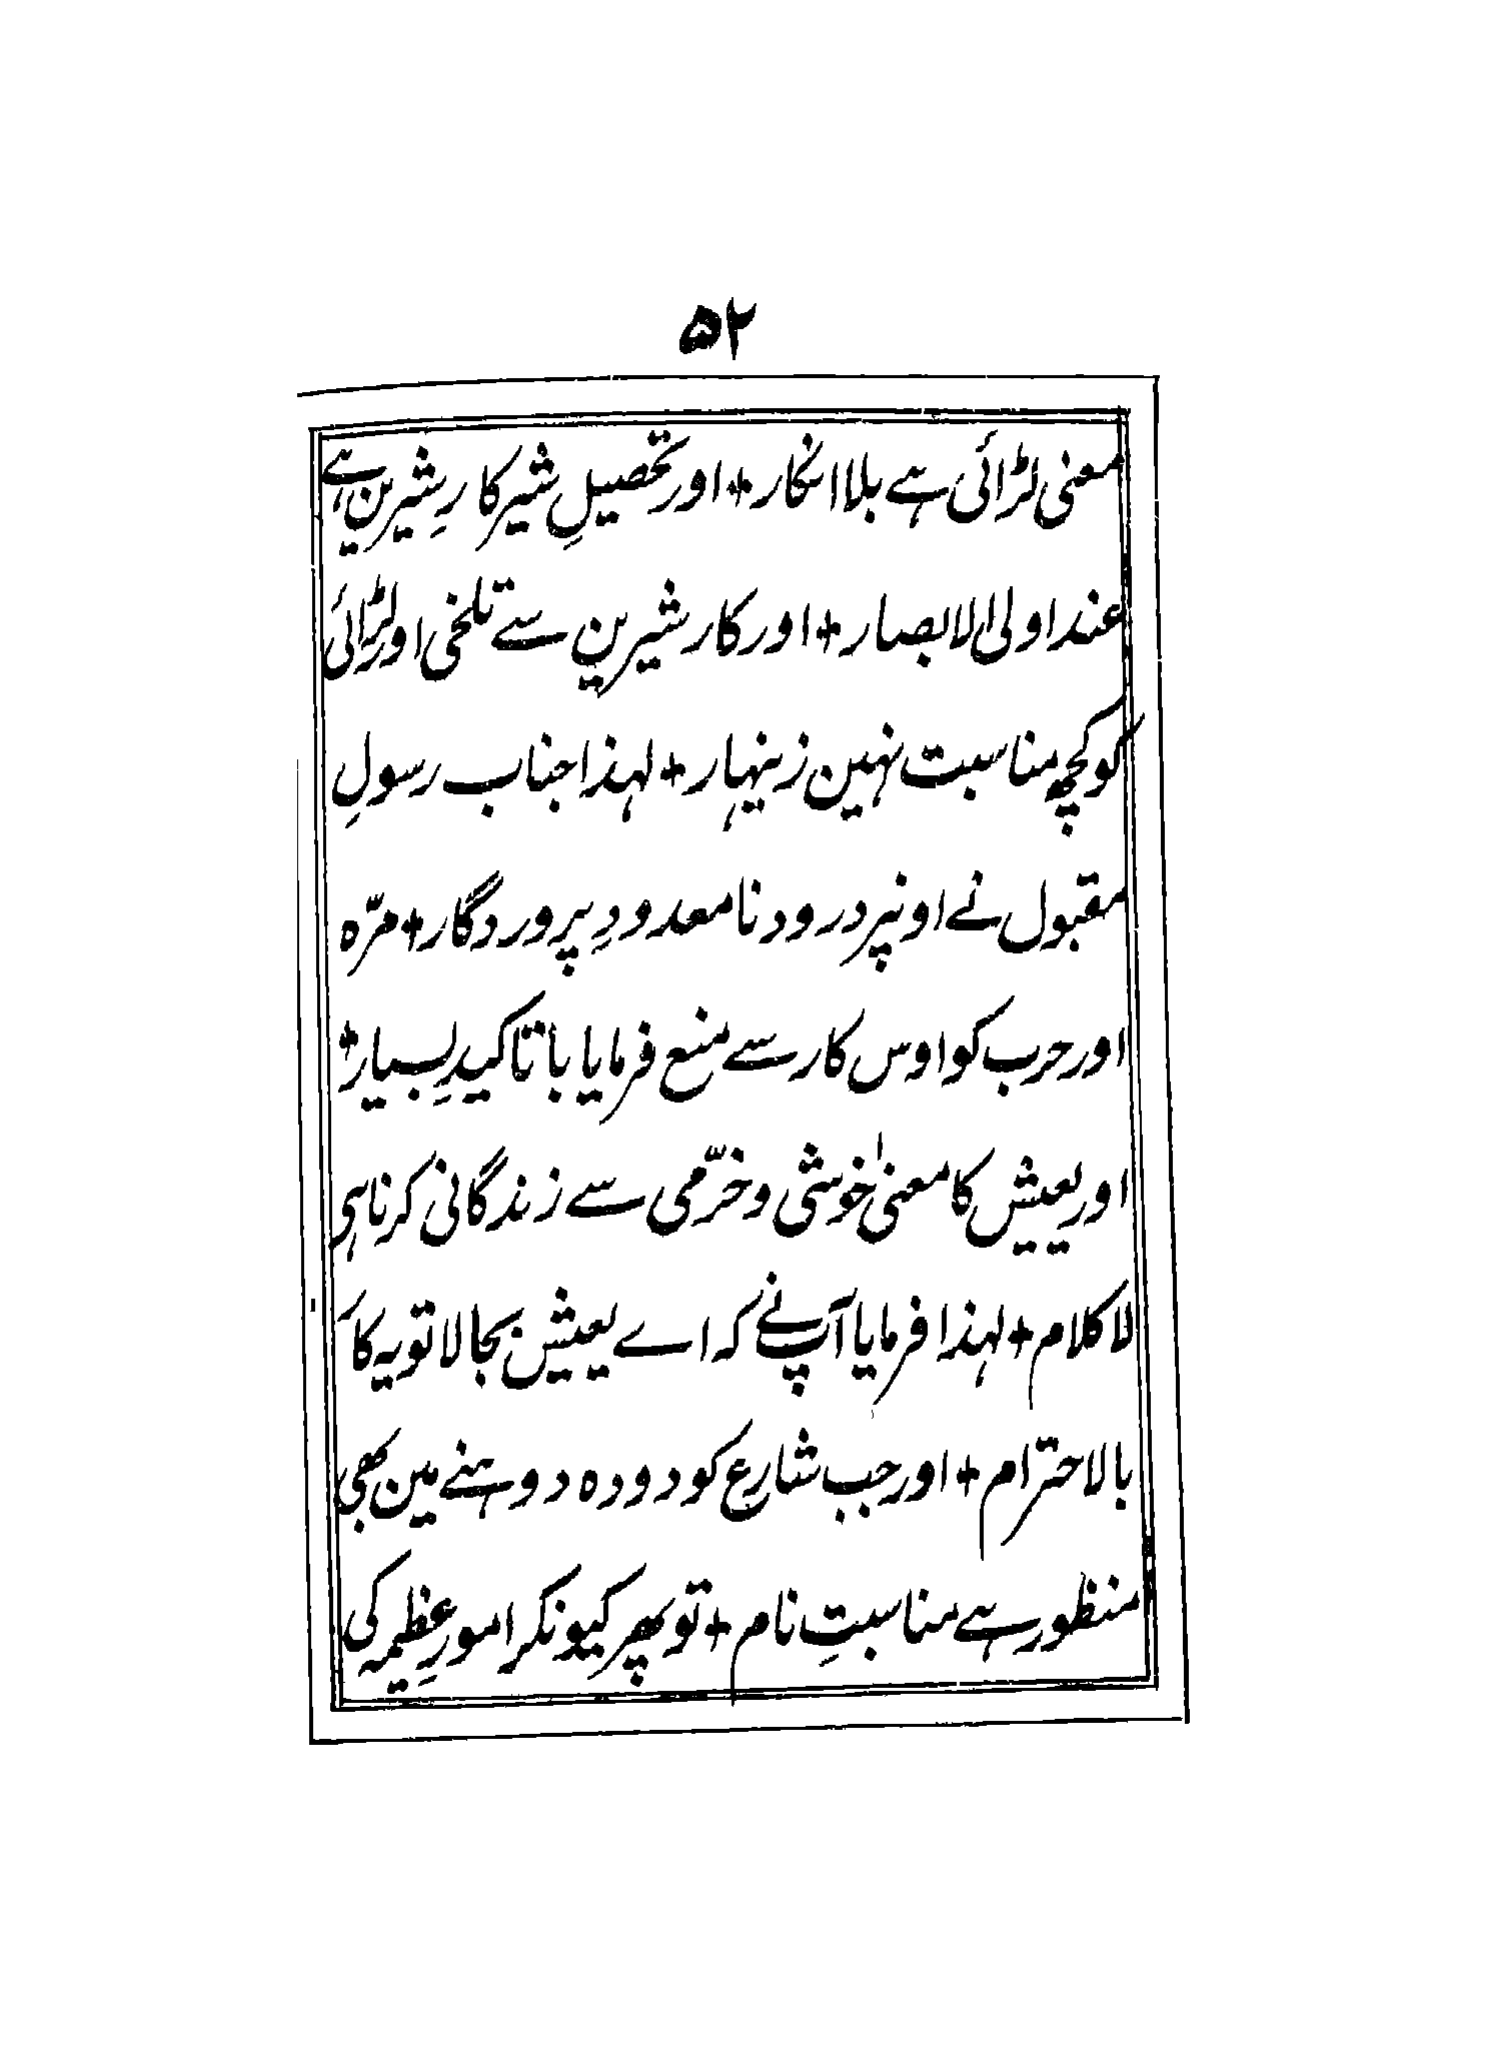 ۵۲
معنی لڑائی ہے بلا انکار + اور تحصیلِ شیر کارِ شیرین ہے
عند اولی الابصار + اور کار شیرین سے تلخی اور لڑائی
کو کچھ مناسبت نہین زینہار + لہذا جناب رسولِ
مقبول نے اونپر درود نامعدودِ پروردگار + مرّہ
اور حرب کو اوس کار سے منع فرمایا با تاکیدِ بسیار +
اور یعیش کا معنیٰ خوشی و خرّمی سے زندگانی کرنا ہی
لا کلام + لہذا فرمایا آپ نے کہ اے یعیش بجا لا تو یہ کار
بالاحترام + اور جب شارع کو دودہ دوہنے مین بھی
منظور ہے مناسبتِ نام + تو پھر کیونکر امورِ عظیمہ کی